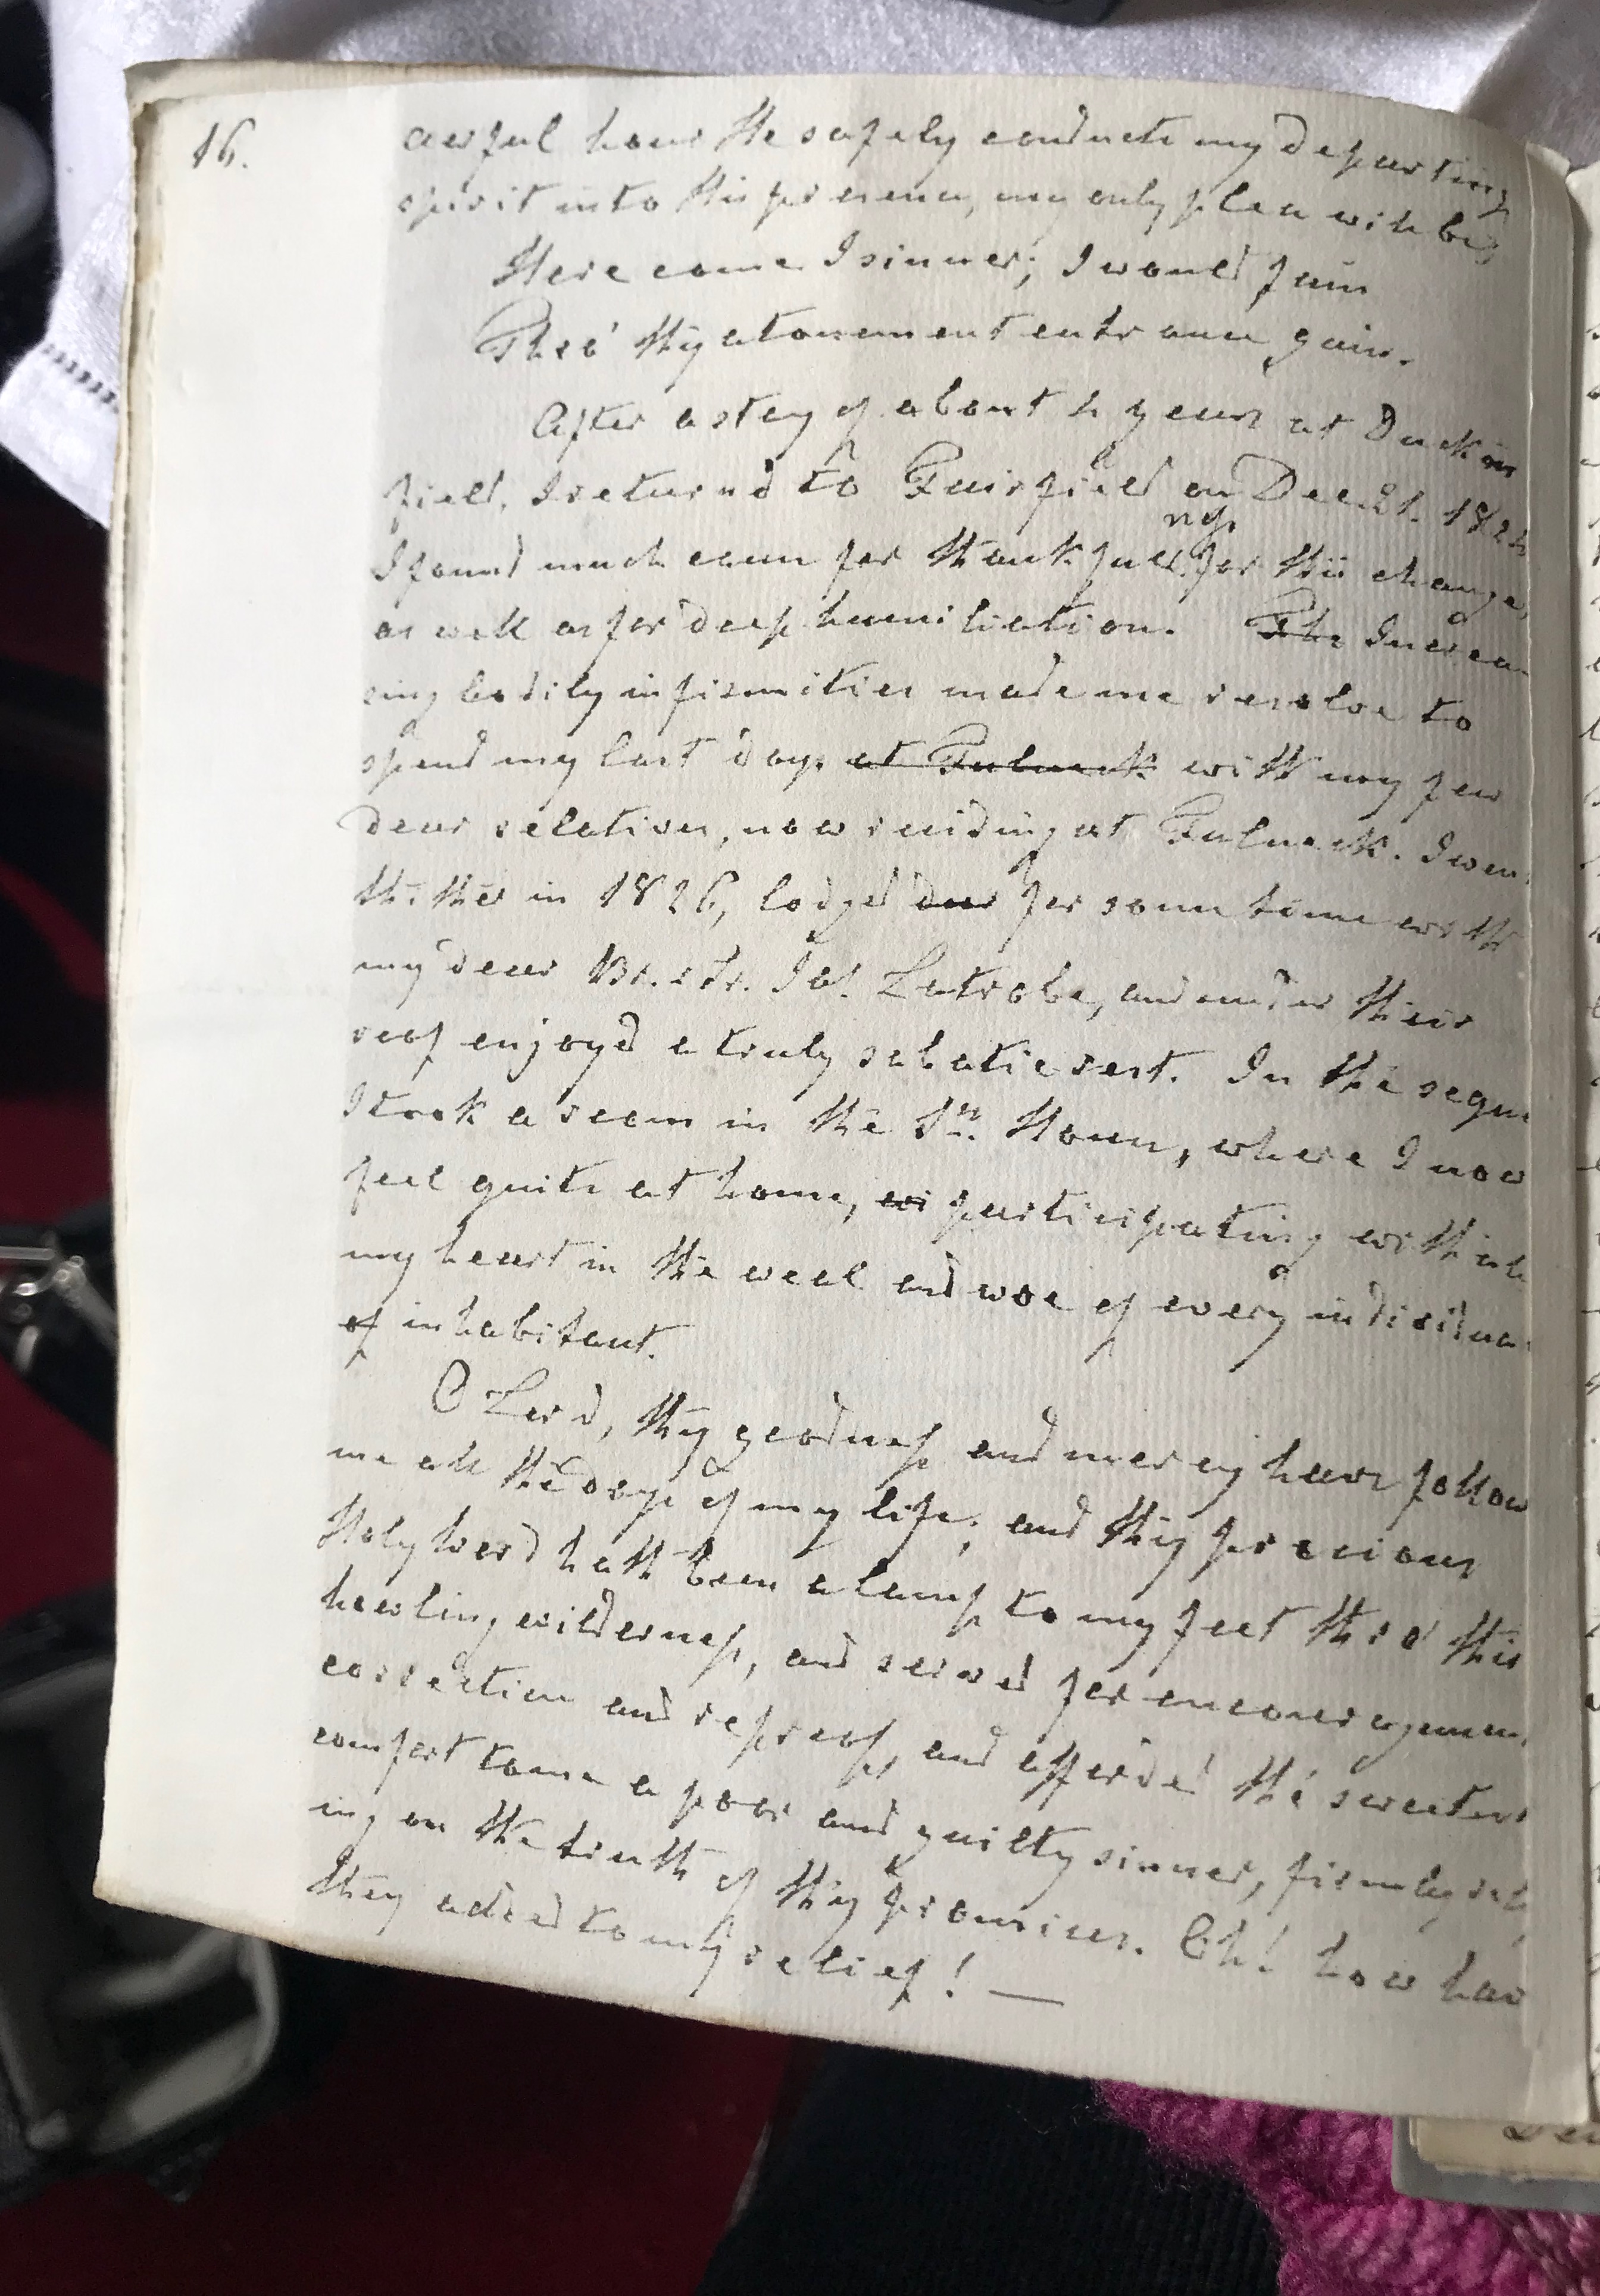 16.
awful hour He safely conducts my departing
spirit into His presence, my only plea will be,
Here come I sinner; I would fain
Thro' thy atonement entrance gain.
After a stay of about 2 years at Duckin
field, I returnd to Fairfield on Dec. 21. 182
I found much cause for thankfulness for this change,
as well as for deep humiliation. The Increa
sing bodily infirmities made me resolve to
spend my last days at Fulneck with my few
dear relatives, now residing at Fulneck. I wen
thither in 1826, lodged for some time with
my dear Br. & Sr. Jas. Latrobe, and under their
roof enjoyd a truly sabatic rest. In the seque
I took a room in the Srs. House, where I now
feel quite at home, wi participating with al
my heart in the weal and woe of every individua
of inhabitant.
O Lord, thy goodness and mercy have follow
me all the days of my life, and thy precious
Holy Word hath been a lamp to my feet thro' this
howling wilderness, and served for encouragemen
correction and reproof, and afforded the sweetest
comfort to me a poor and guilty sinner, firmly rely
ing on the truth of thy promises. Oh! how hav
they aded to my relief! —